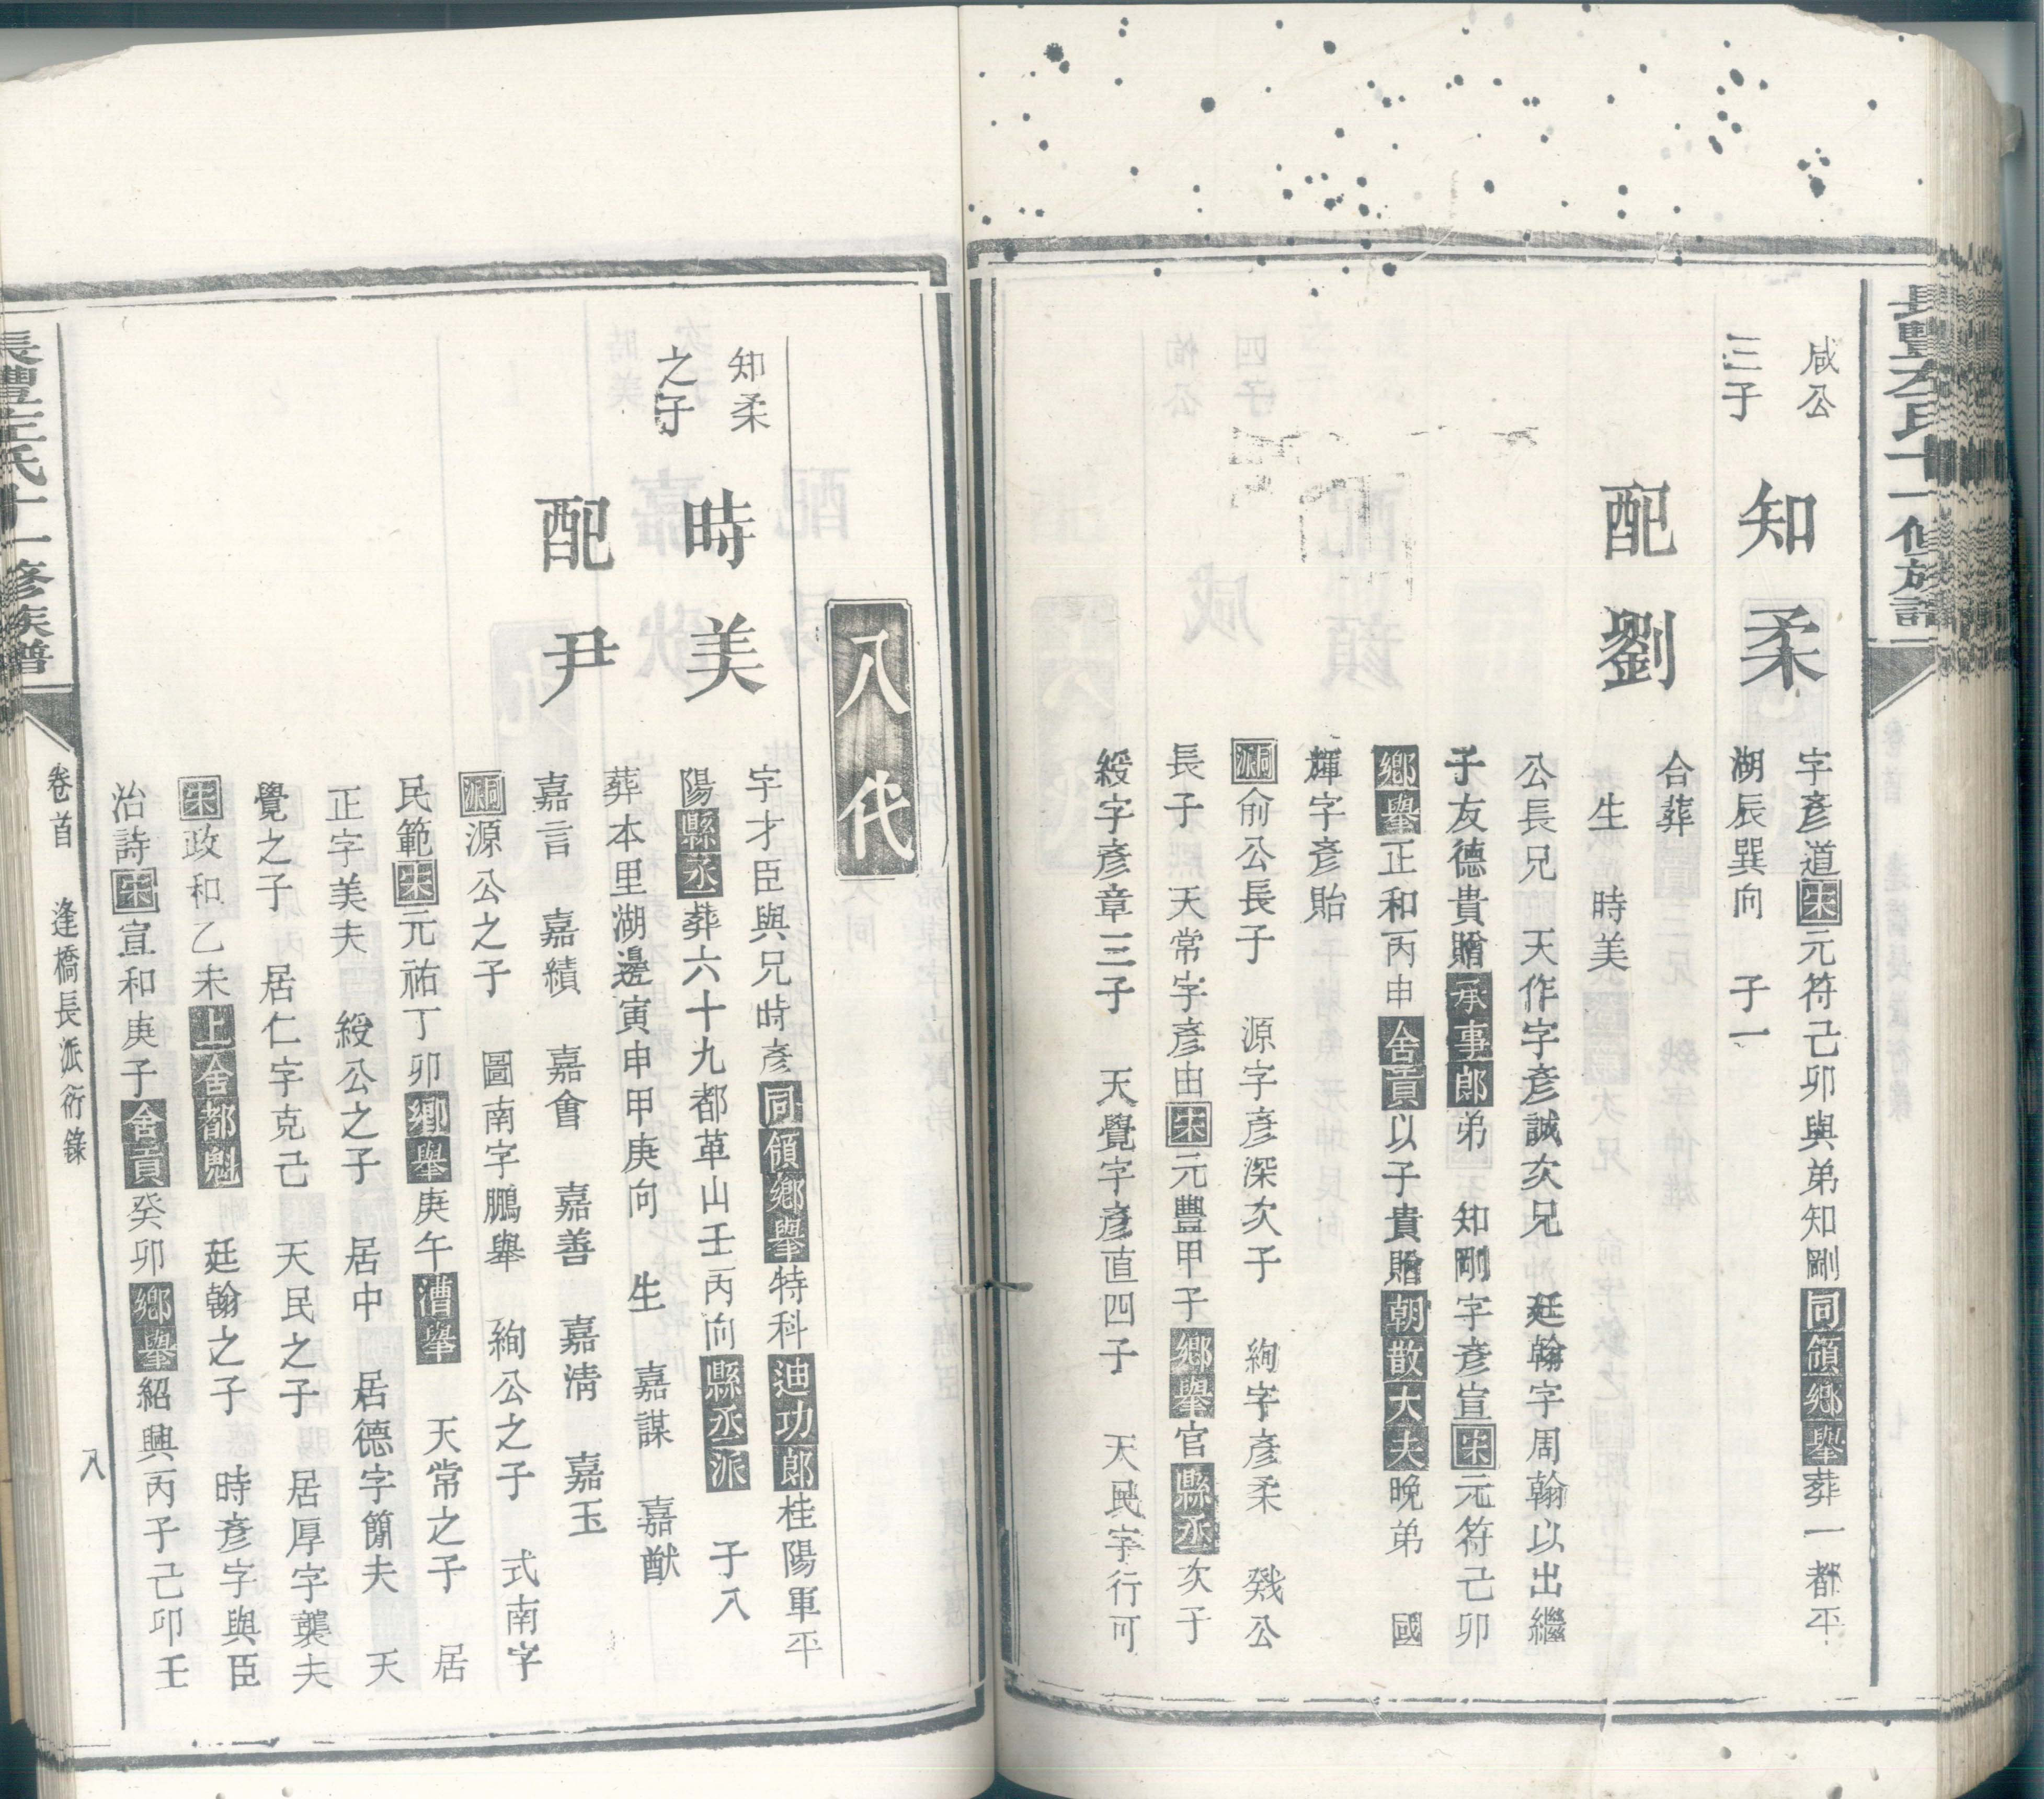 咸公
三子
知柔
配劉
字彥道宋元符己卯與弟知剛同領鄉舉葬一都平
湖辰巽向 子一
合葬
生 時美
公長兄 天作字彥誠次兄 廷翰字周翰以出繼
子友德貴贈承事郎弟 知剛字彥宣宋元符己卯
鄉舉正和丙申舍貢以子貴贈朝散大夫晚弟 國
輝字彥貽
洞派俞公長子 源字彥深次子 絢字彥柔 戣公
長子 天常字彥由宋元豐甲子鄉舉官縣丞次子
綬字彥章三子 天覺字彥直四子 天民字行可
八代
知柔
之子
時美
配尹
字才臣與兄時彥同領鄉舉特科迪功郎桂陽軍平
陽縣丞葬六十九都革山壬丙向縣丞派 子八
葬本里湖邊寅申甲庚向 生 嘉謀 嘉猷
嘉言 嘉績 嘉會 嘉善 嘉清 嘉玉
洞派源公之子 圖南字鵬舉 絢公之子 式南字
民範宋元祐丁卯鄉舉庚午漕舉 天常之子 居
正字美夫 綬公之子 居中 居德字簡夫 天
覺之子 居仁字克己 天民之子 居厚字龔夫
宋政和乙未上舍都魁 廷翰之子 時彥字與臣
治詩宋宣和庚子舍貢癸卯鄉舉紹興丙子己卯壬
卷首 逢橋長派衍錄 八